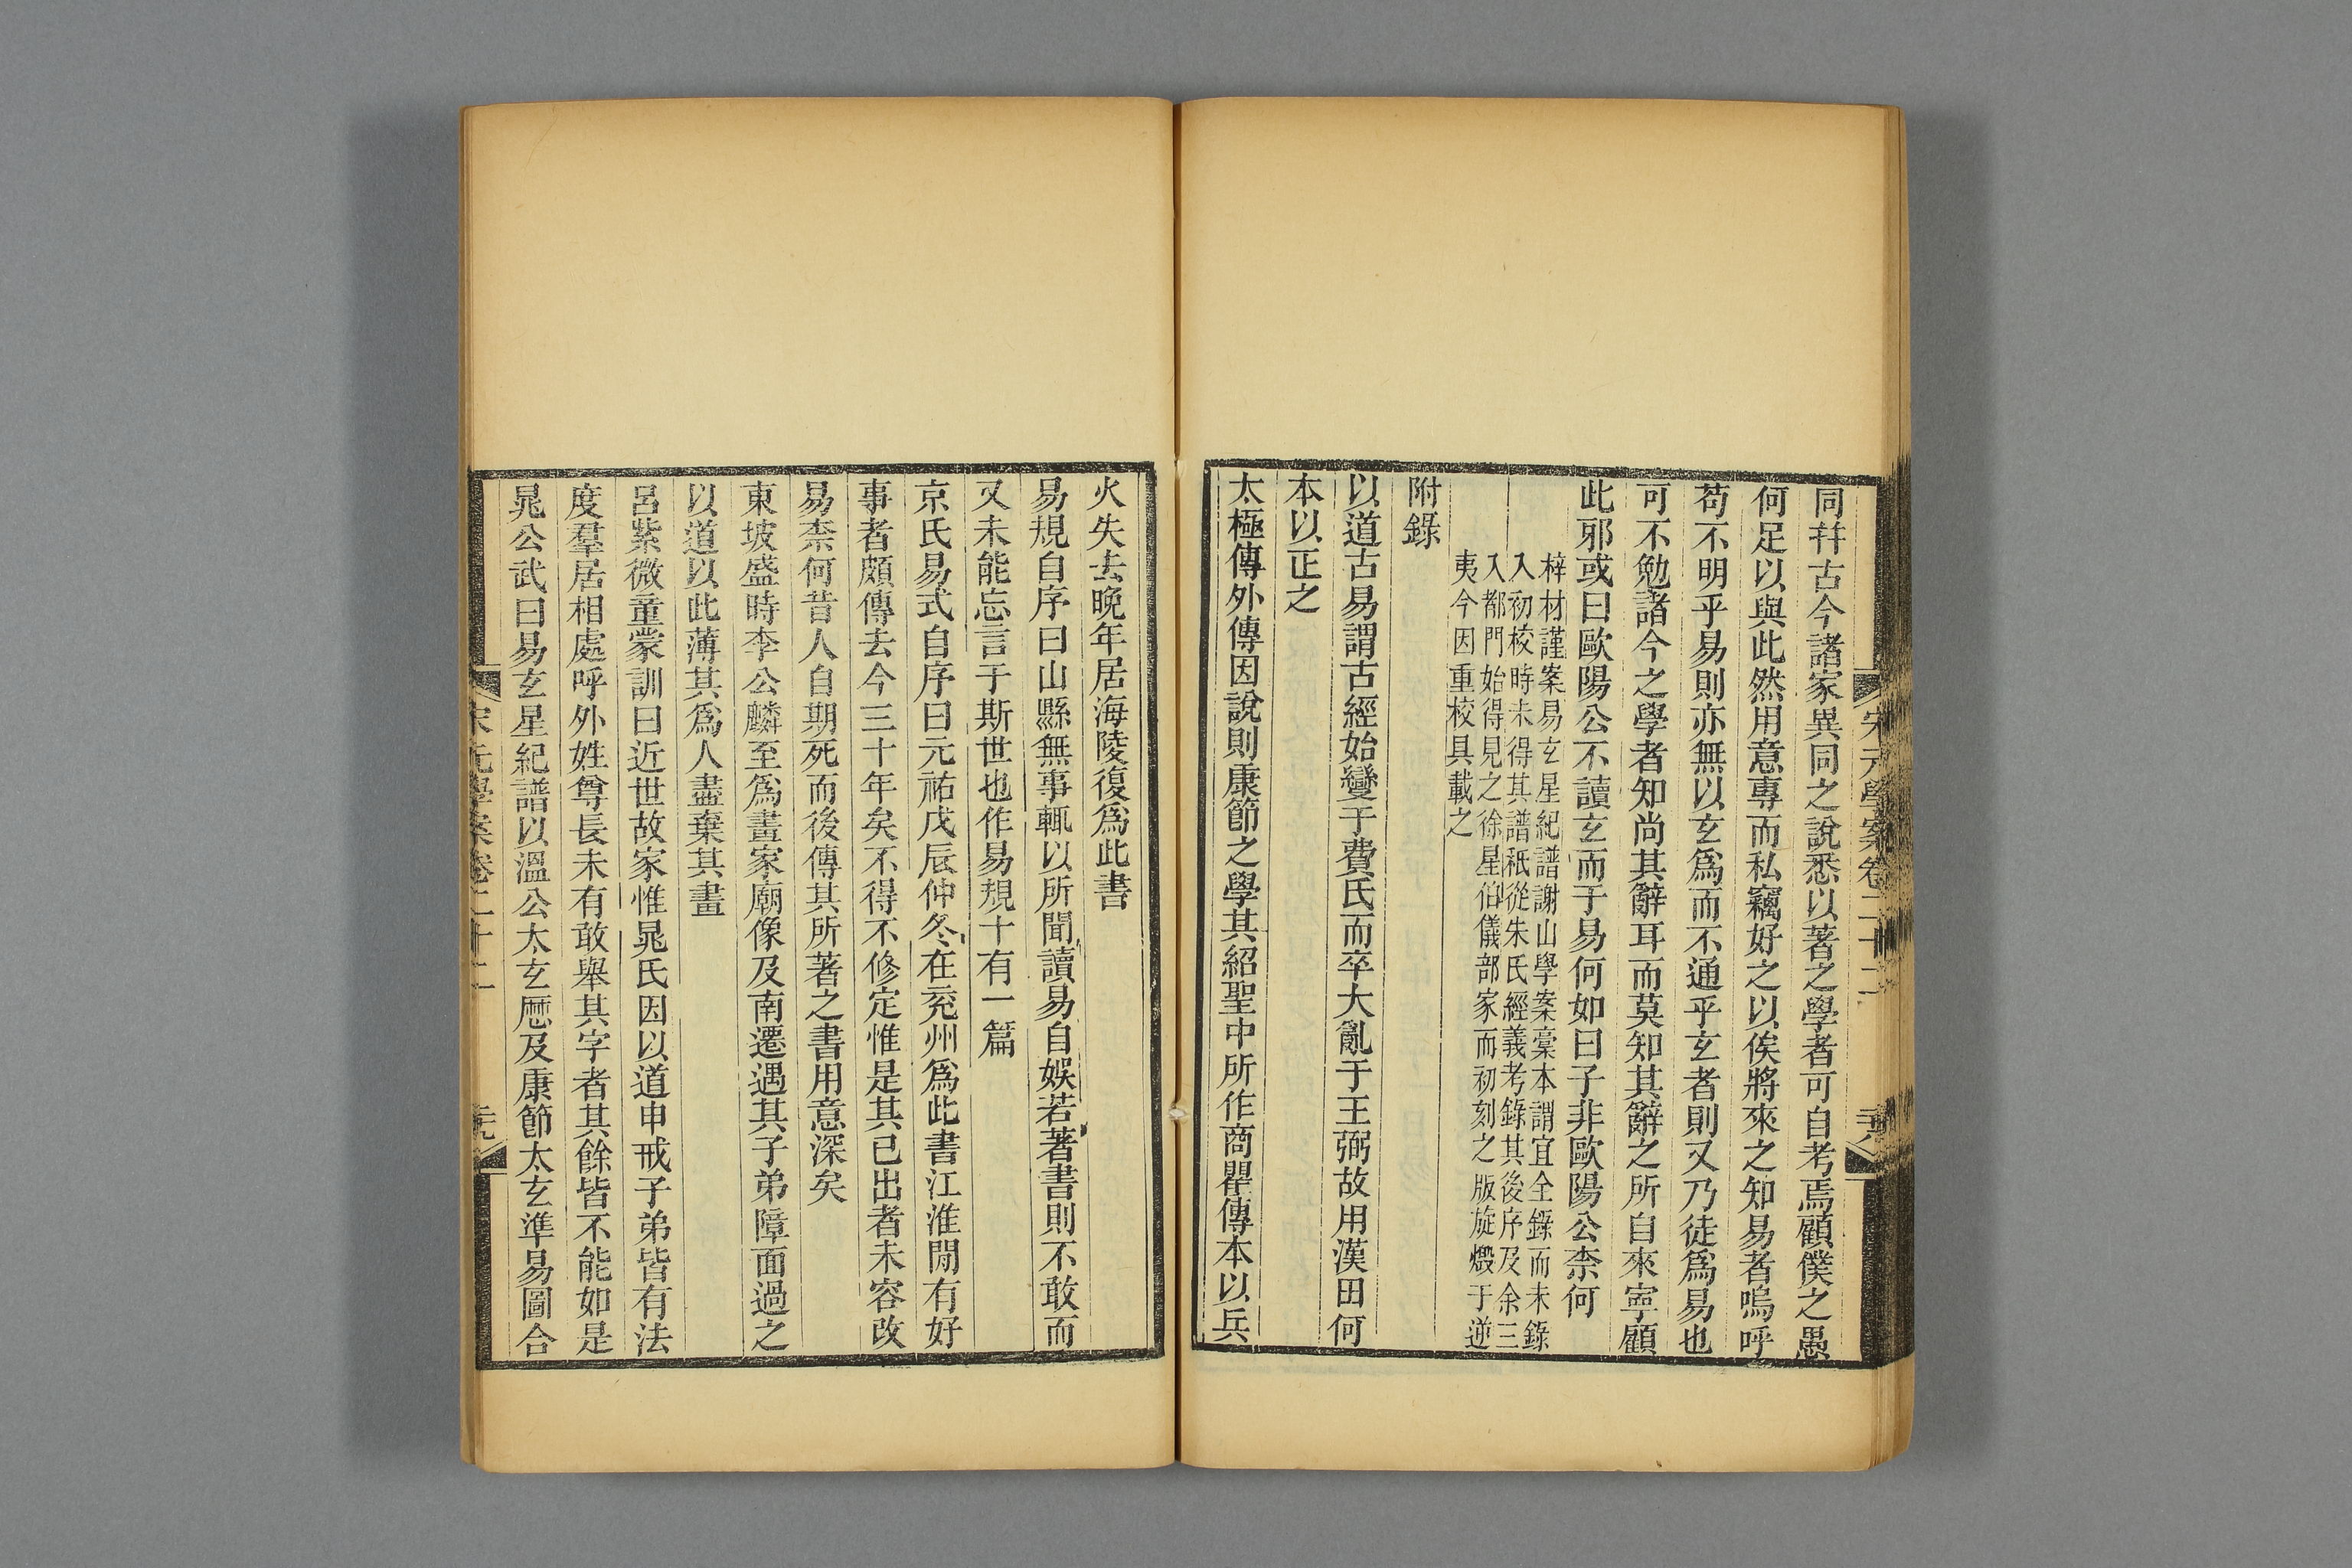 宋元學案卷二十二
同幷古今諸家異同之說悉以著之學者可自考焉顧僕之愚
何足以與此然用意專而私竊好之以俟將來之知易者嗚呼
苟不明乎易則亦無以玄爲而不通乎玄者則又乃徒爲易也
可不勉諸今之學者知尚其辭耳而莫知其辭之所自來寧顧
此邪或曰歐陽公不讀玄而于易何如曰子非歐陽公柰何
梓材謹案易玄星紀譜謝山學案稾本謂宜全錄而未錄
入初校時未得其譜秖從朱氏經義考錄其後序及余三
入都門始得見之徐星伯儀部家而初刻之版旋燬于逆
夷今因重校具載之
附錄
以道古易謂古經始變于費氏而卒大亂于王弼故用漢田何
本以正之
太極傳外傳因說則康節之學其紹聖中所作商瞿傳本以兵
火失去晚年居海陵復爲此書
易規自序曰山縣無事輒以所聞讀易自娛若著書則不敢而
又未能忘言于斯世也作易規十有一篇
京氏易式自序曰元祐戊辰仲冬在兗州爲此書江淮閒有好
事者頗傳去今三十年矣不得不修定惟是其已出者未容改
易柰何昔人自期死而後傳其所著之書用意深矣
東坡盛時李公麟至爲畫家廟像及南遷遇其子弟障面過之
以道以此薄其爲人盡棄其畫
呂紫微童蒙訓曰近世故家惟晁氏因以道申戒子弟皆有法
度羣居相處呼外姓尊長未有敢舉其字者其餘皆不能如是
晁公武曰易玄星紀譜以溫公太玄厯及康節太玄準易圖合
宋元學案卷二十二